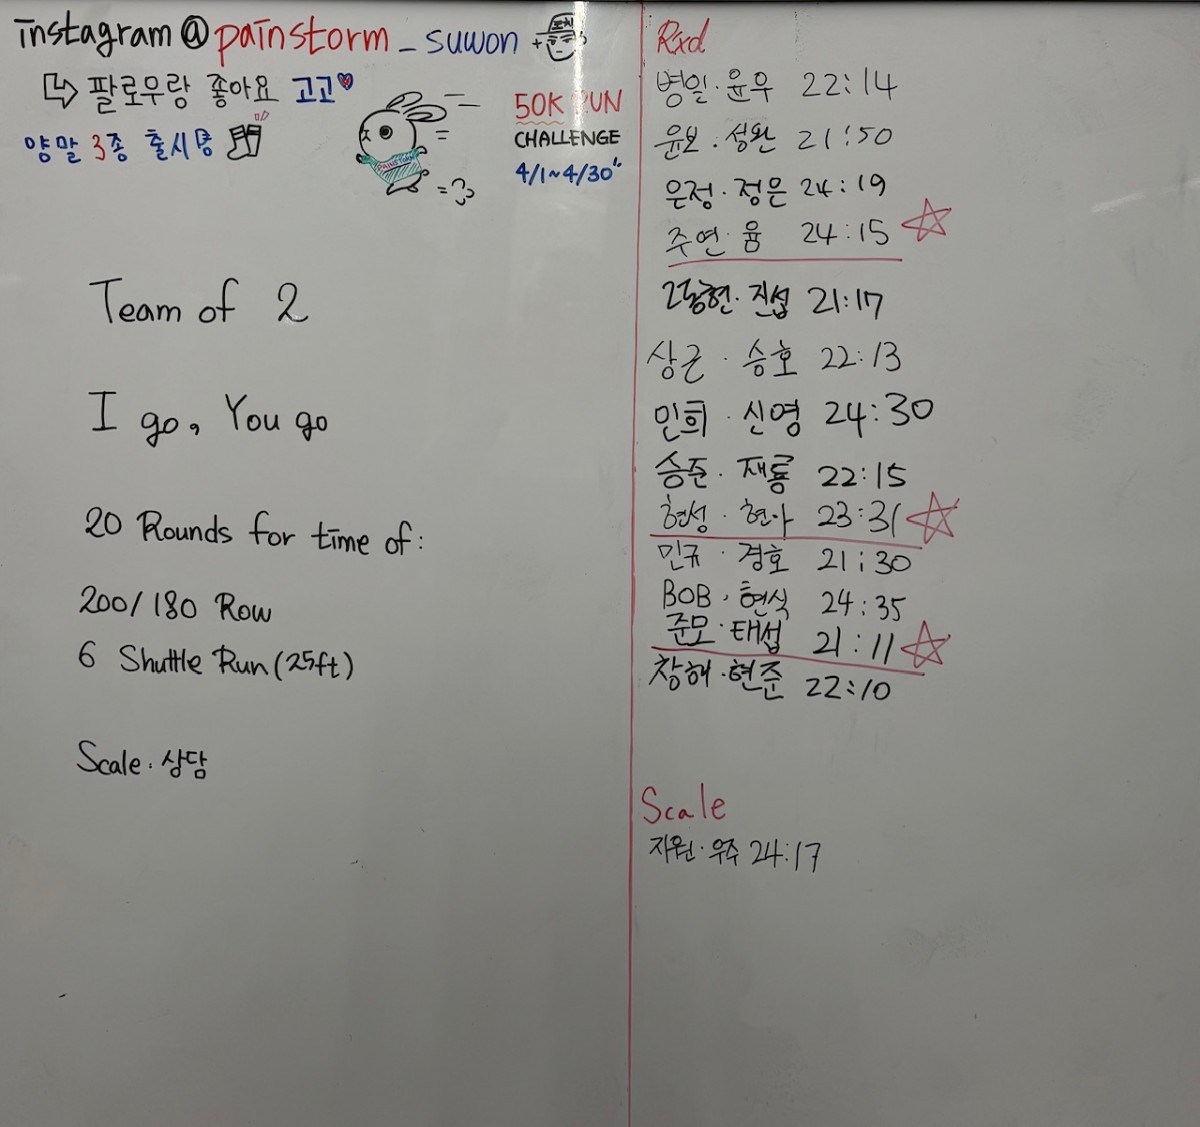 instagram@painstorm_suwon
팔로우랑 좋아요 고고
양말 3종 출시 중
PAINSTORM
50K RUN
CHALLENGE
4/1~4/30
Team of 2
I go, You go
20 Rounds for time of:
200/180 Row
6 Shuttle Run (25ft)
Scale. 상담
Rxd
병일·윤우 22:14
윤보·성완 21:50
은정·정은 24:19
주연·윰 24:15
동현·진섭 21:17
상근·승호 22:13
민희·신영 24:30
승준·재룡 22:15
현성·현아 23:31
민규·경호 21:30
BOB·현식 24:35
준모·태섭 21:11
창해·현준 22:10
Scale
지원·우주 24:17